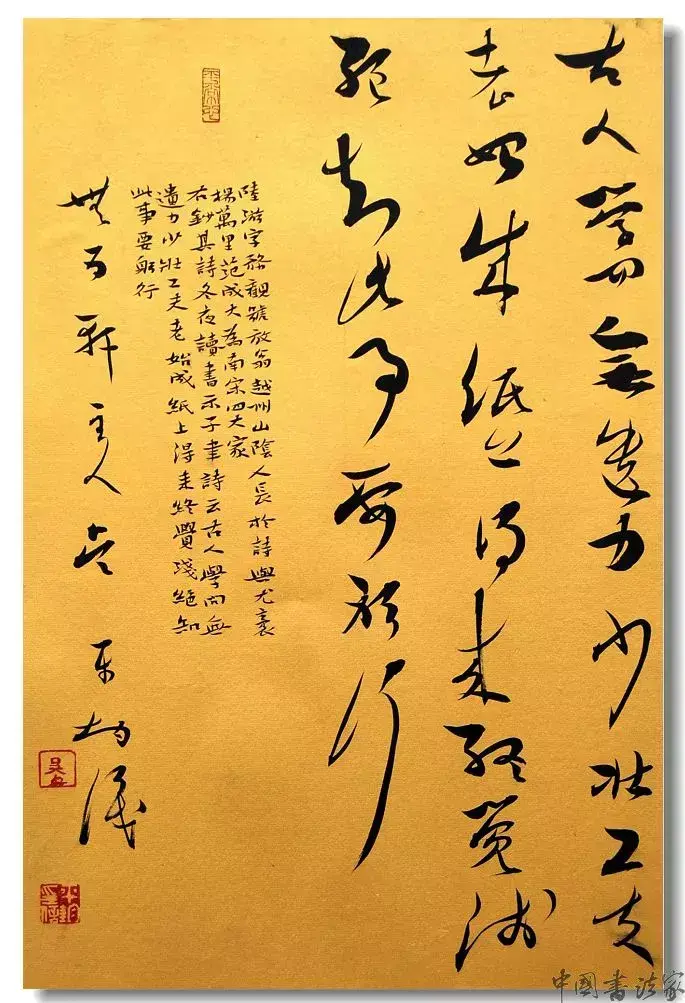 古人學問無遺力少壯工夫
老始成紙上得來終覺淺
絕知此事要躬行
陸游字務觀號放翁越州山陰人長於詩與尤袤
楊萬里范成大為南宋四大家
右鈔其詩冬夜讀書示子聿詩云古人學問無
遺力少壯工夫老始成紙上得来終覺淺絕知
此事要躬行
軒主人
中國書法家